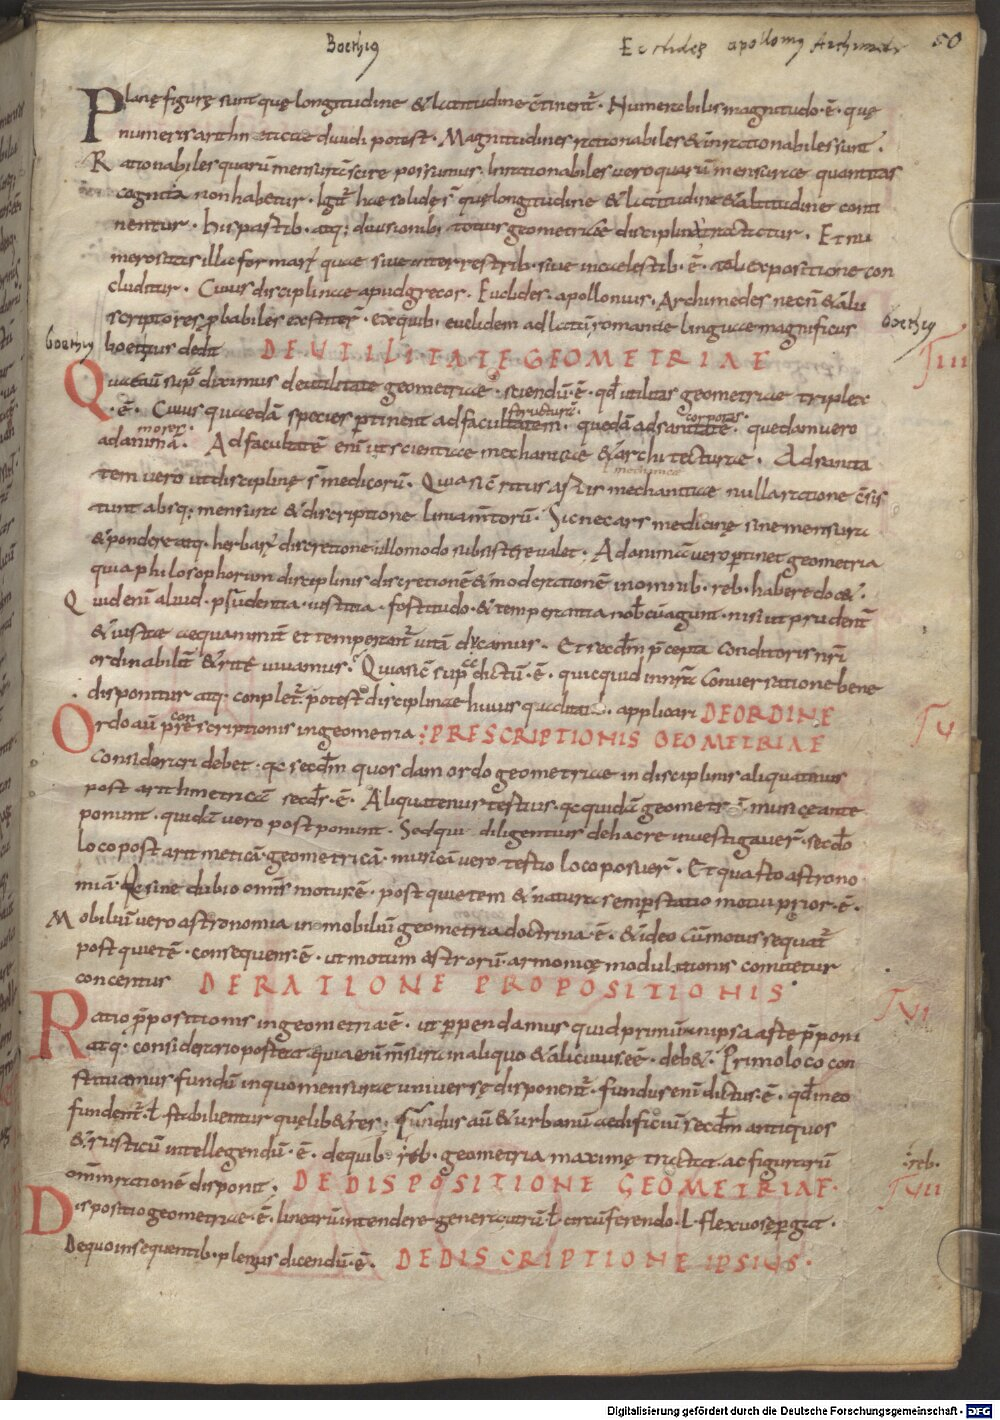 Boethiꝰ
Euclides apollonius Archimedes 50
Planę figurę sunt quę longitudine & latitudine c̄tinent̄. Numerabilis magnitudo.ē. quę
numeris arithmeticae diuidi potest. Magnitudines rationabiles & inrationabiles sunt.
Rationabiles quarū mensurā scire possumus. Inrationabiles uero quarū mensurae quantitas
cognita non habetur. Igit̄ hae solidę s̄ quę longitudine & latitudine & altitudine conti
nentur. His partib. atq; diuisionib; totius geometriae disciplina tractatur. Et nu
merositas illa formarū quae siue in terrestrib. siue in caelestib. ē. tali expositione con
cluditur. Cuius disciplinae apud grecos. Euclides. apollonius. Archimedes necn̄ & alii
scriptores p̱babiles extiter̄. ex quib. euclidem ad latiū romanae linguae magnificus
Boethiꝰ
boetius dedit DE UTILITATE GEOMETRIAE
Boethiꝰ
IIII
Quae aū sup̄ diximus de utilitate geometricae. sciendū.ē. qd̄ utilitas geometriae triplex
.ē. Cuius quaedā species p̱tinent ad facultatem. quedā ad sanitatē. quedam uero
structurę. corporis.
mores.
ad animā. Ad facultatē enī ut scientiae mechanicae & architecturae. Ad sanita
tem uero ut disciplinę s̄ medicorū. Quia sic̄ situs artis mechanicae nulla ratione c̄sis
mechanica
tunt absq; mensura & discriptione liniam̄torū. Sic nec ars medicinę sine mensura
& pondere atq. herbarū discretione ullomodo subsistere ualet. Ad animā uero p̱tinet geometria
quia philosophorum disciplinis discretionē & moderationē in omnib. reb. habere doc&.
Quid enī aliud. prudentia. iustitia. fortitudo. & temperantia nob̄cū agunt. nisi ut prudent̄
& iuste aequanimit̄ et temperant̄ uitā ducamus. Et secdm̄ p̄cepta conditoris nr̄i
ordinabilit̄ & rite uiuamus. Quia sic̄ sup̄ dictū.ē. quicquid in nr̄a conuersatione bene
disponitur atq. conplet̄. potest disciplinae huius qualitati. applicari DE ORDINE
Ordo aū prescriptionis in geometria: PRESCRIPTIONIS GEOMETRIAE
con
V
considerari debet. qa secdm̄ quosdam ordo geometriae in disciplinis aliquatinus
post arithmetricā secds̄.ē. Aliquatenus tertius. qa quidā geometr̄ā musicę ante
ponunt. quidā uero post ponunt. Sed qui diligentius de hac re inuestigauer̄. secdo̅
loco post aritmeticā. geometricā. musicā uero tertio loco posuer̄. Et quarto astrono
miā. Qa sine dubio om̄s motus rē. post quietem & natura semp̱ statio motu prior.ē.
Mobiliū uero astronomia inmobiliū geometria doctrina.ē. & ideo cū motus sequat̄
post quietē. consequens.ē. ut motum astrorū armonicę modulationis comitetur
concentus DE RATIONE PROPOSITIONIS
VI
Ratio p̱positionis in geometria.ē. ut perpendamus quid primū in ipsa arte p̱poni
atq. consideratio postea. quia enī m̄sura in aliquo & alicuius.eē. deb&. Primo loco con
stituamus fundū in quo mensurae uniuersę disponent̄. fundus enī dictus.ē. qd̄ in eo
fundent̄. ł stabilientur quęlib& res. fundus aū & urbanū aedificiū secdm̄ antiquos
& rusticū intellegendū.ē. de quib. reb. geometria maxime tractat. ac figurarū
.reb.
omnī rationē disponit. DE DISPOSITIONE GEOMETRIAE.
VII
Dispositio geometriae.ē. linearū intendere genera curuarū ł circūferendo. ł flexuosę p̱git.
De quo in sequentib. plenius dicendū.ē. DE DISCRIPTIONE IPSIUS.
Digitalisierung gefördert durch die Deutsche Forschungsgemeinschaft - DFG